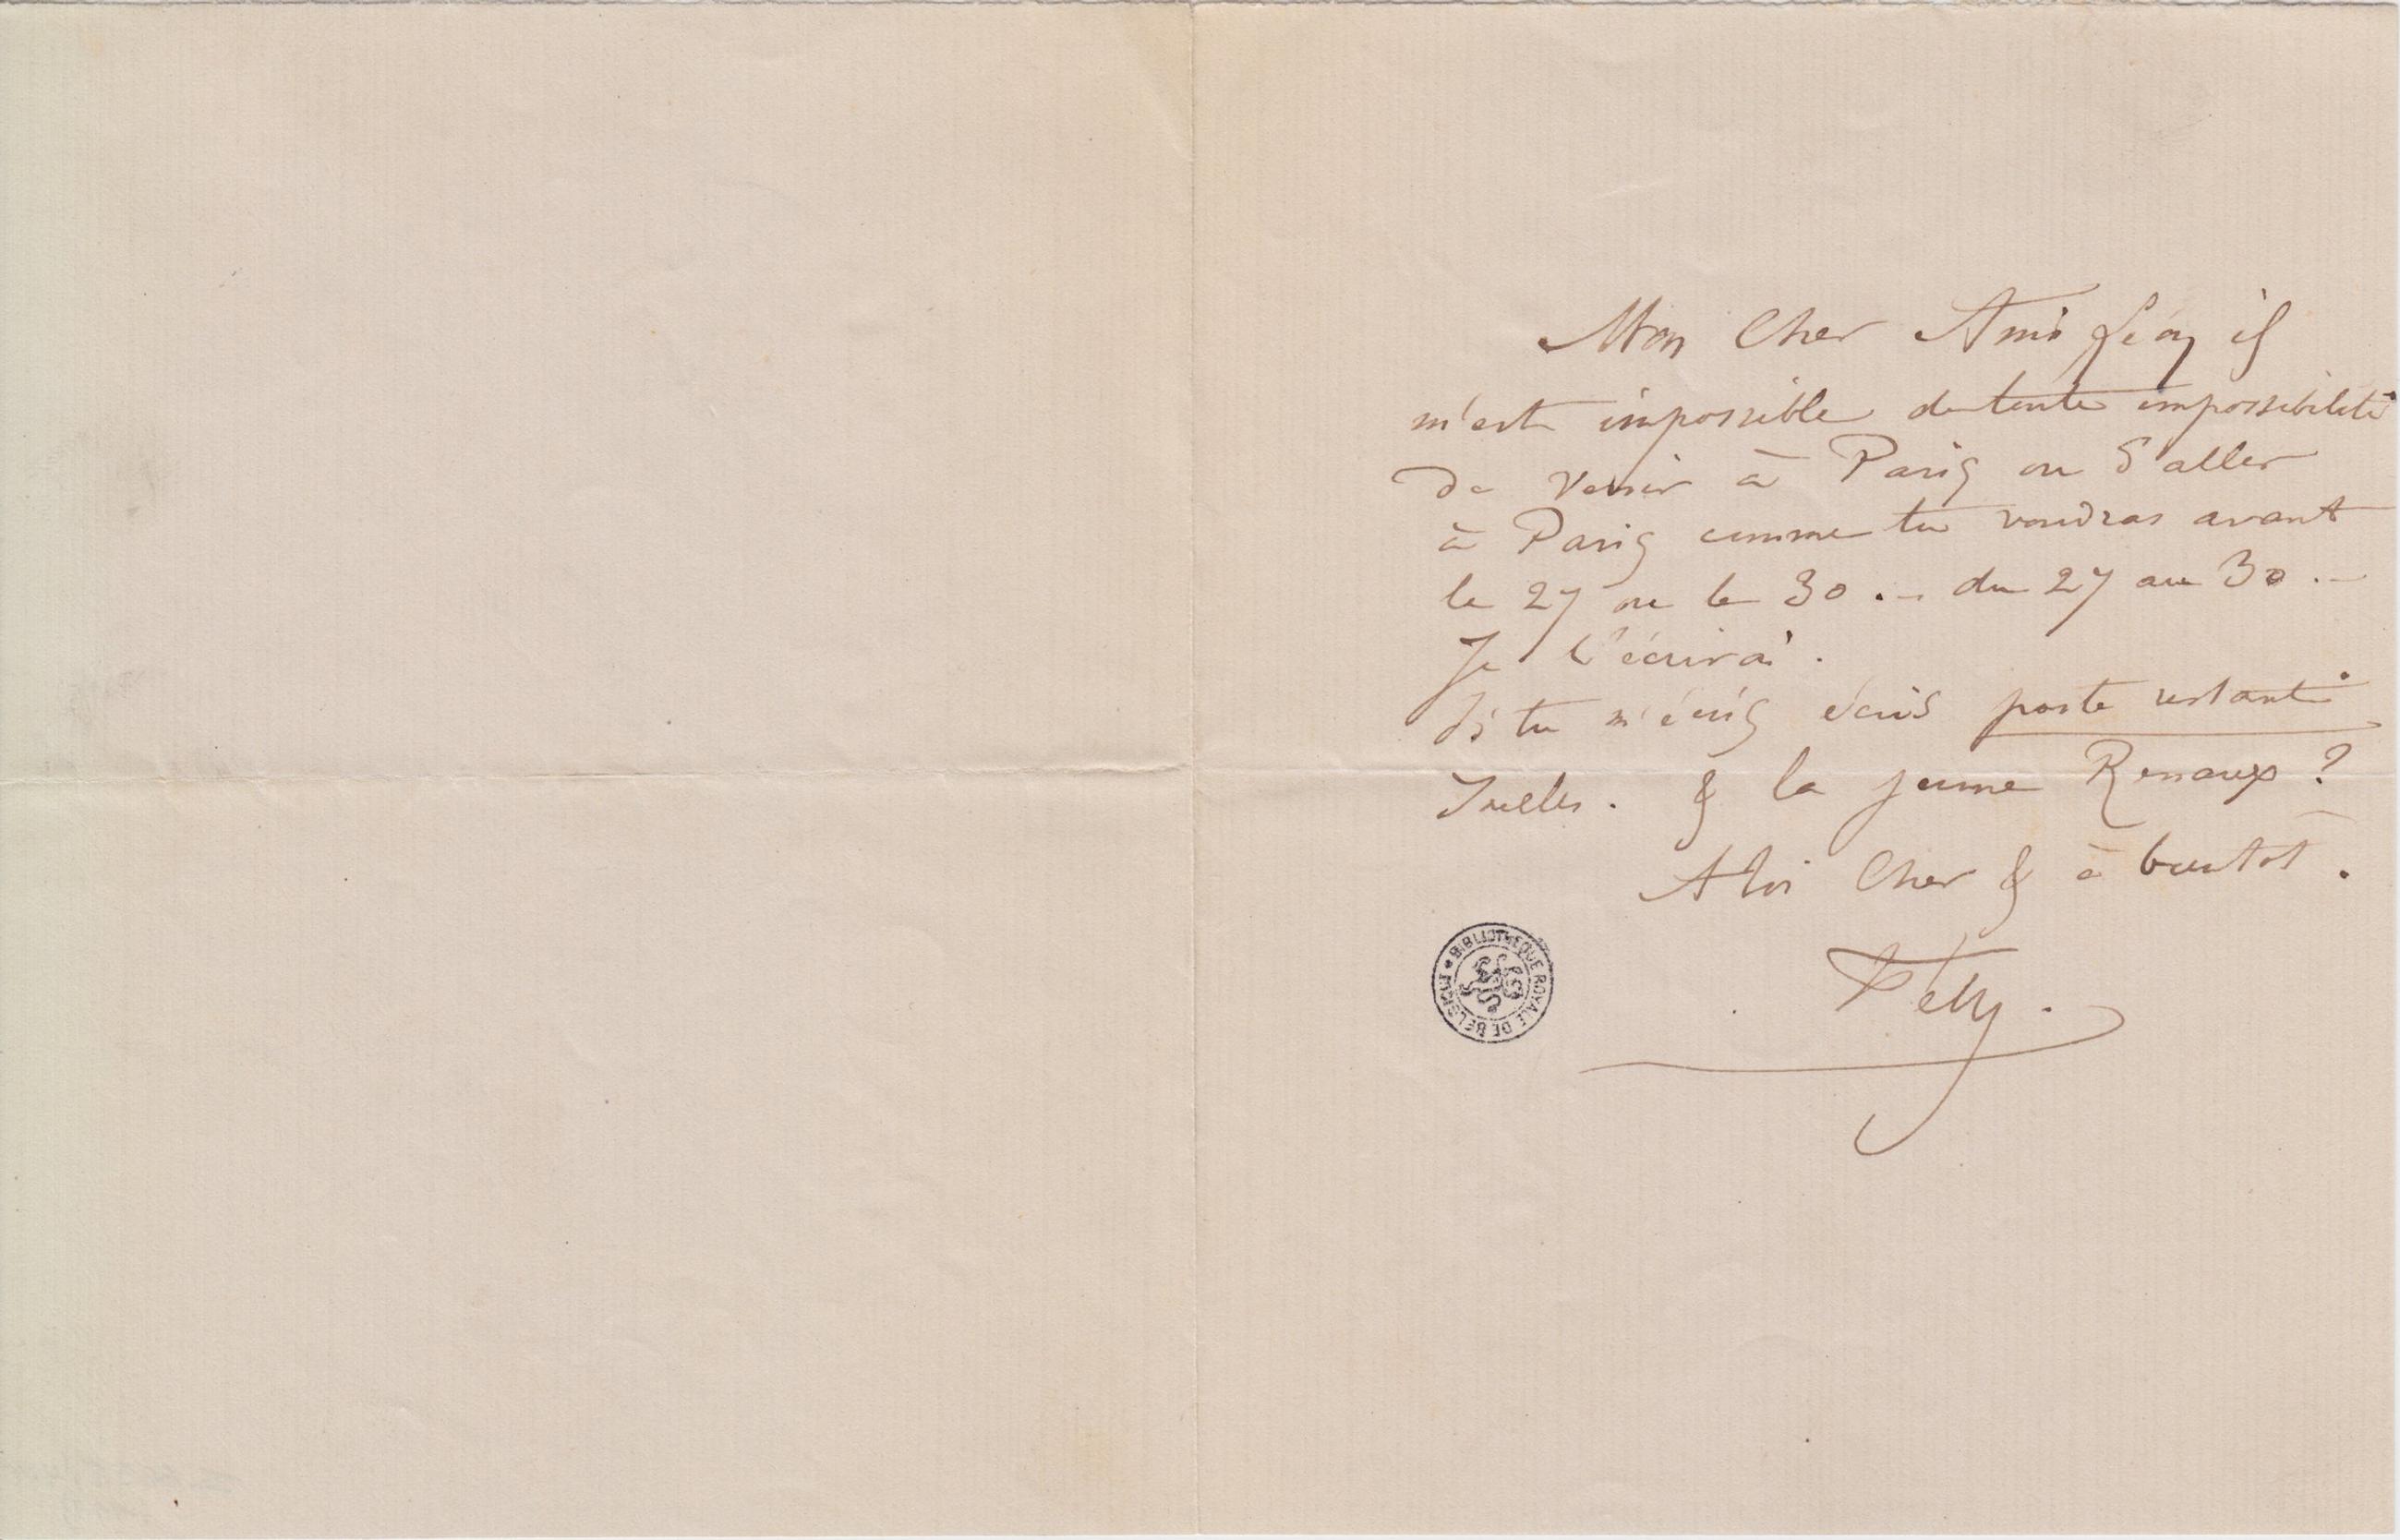 Mon Cher Ami Léon il
m'est impossible de toute impossibilité
de venir à Paris ou d'aller
à Paris comme tu voudras avant
le 27 ou le 30 . – du 27 au 30 . –
Je t'écrirai .
Si tu m'écris écris poste restante
Ixelles . & la jeune Renaux ?
A toi Cher & à bientôt .
Fély .
BIBLIOTHEQUE ROYALE DE BELGIQUE